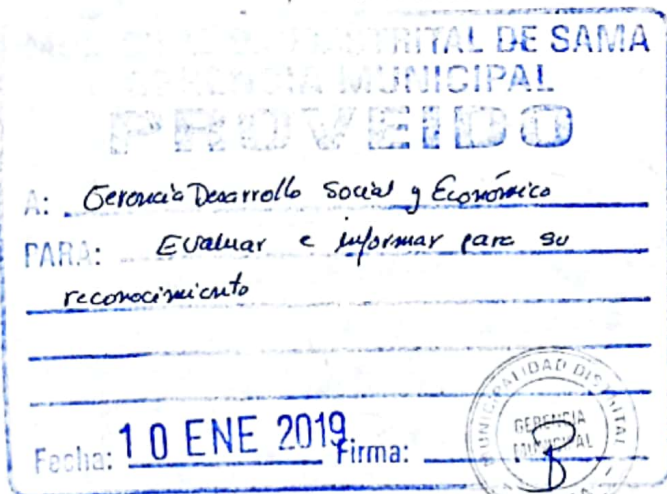 DISTRITAL DE SAMA
GERENCIA MUNICIPAL
PROVEIDO
A: Gerencia Desarrollo Social y Económico
PARA: Evaluar e informar para su
reconocimiento
Fecha: 10 ENE 2019 Firma:
MUNICIPALIDAD DISTRITAL
GERENCIA
MUNICIPAL